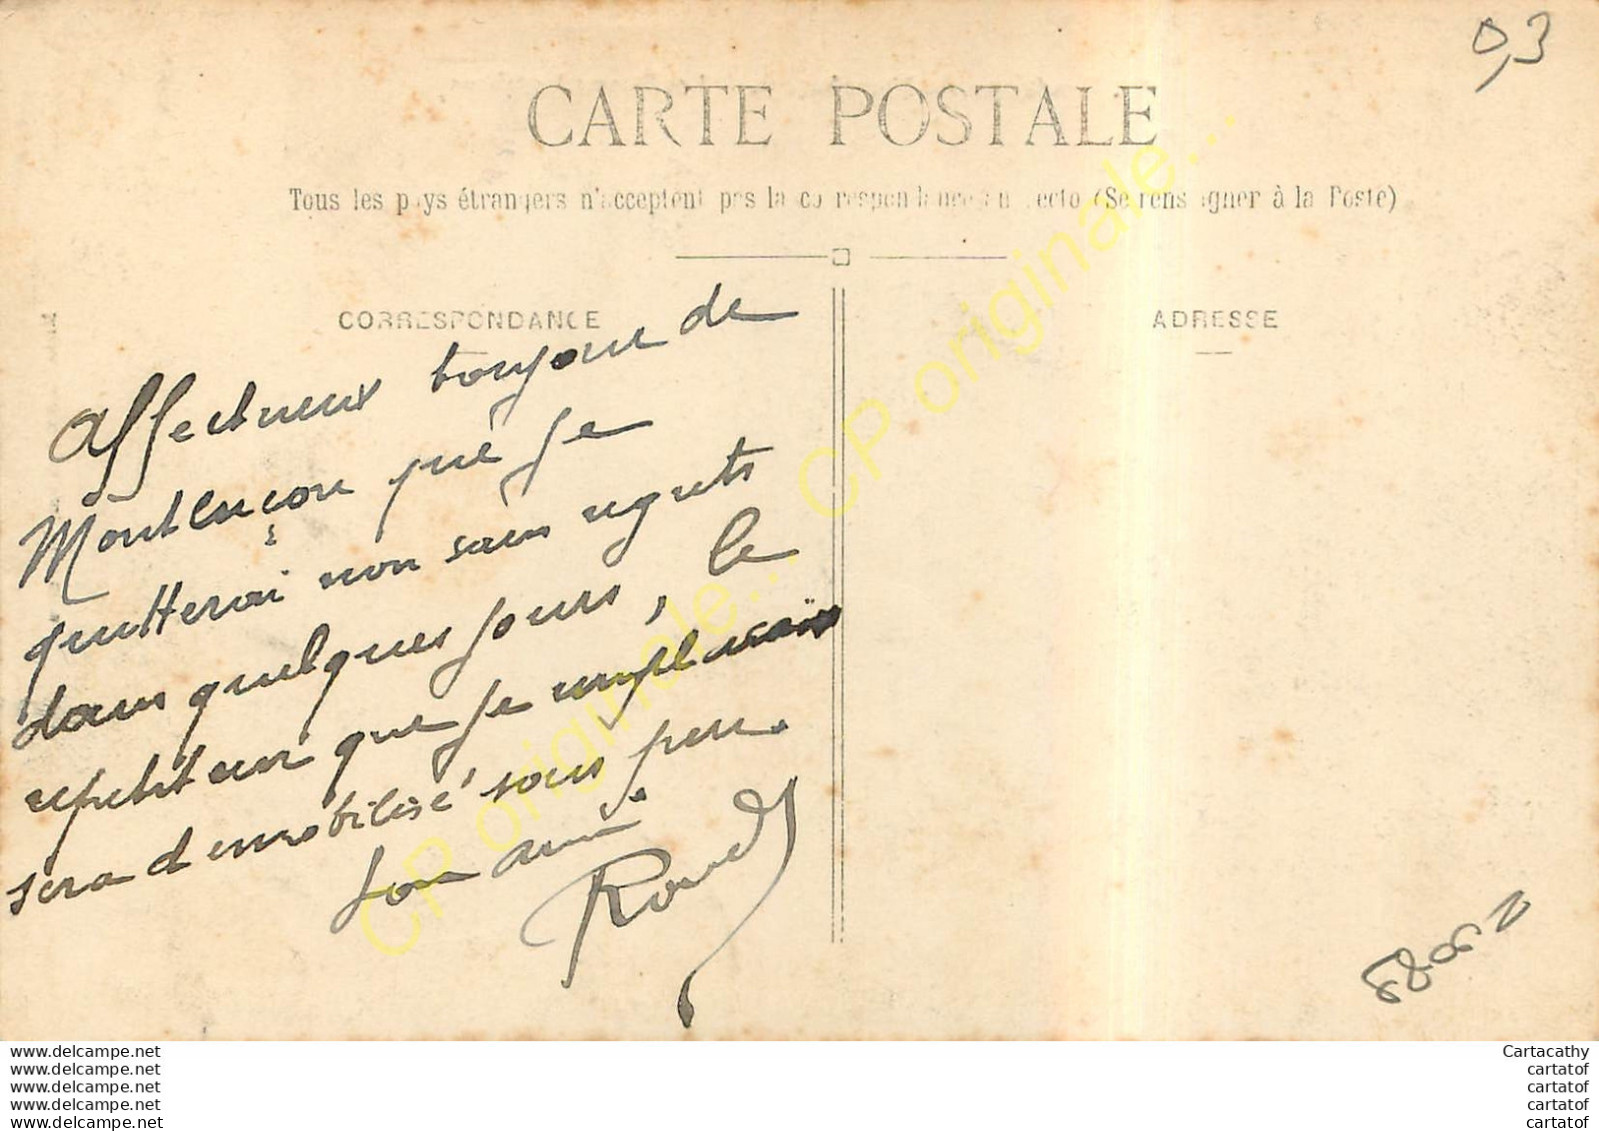 0,3
CARTE POSTALE
Tous les pays étrangers n'acceptent pas la correspondance au recto (Se renseigner à la Poste)
CORRESPONDANCE
ADRESSE
Affectueux bonjour de
Montluçon que je
quitterai non sans regrets
dans quelques jours, le
repetiteur que je remplaçais
sera demobilisé sous peu.
Ton ami.
CP originale...
CP originale...
www.delcampe.net
www.delcampe.net
www.delcampe.net
www.delcampe.net
www.delcampe.net
Cartacathy
cartatof
cartatof
cartatof
cartatof